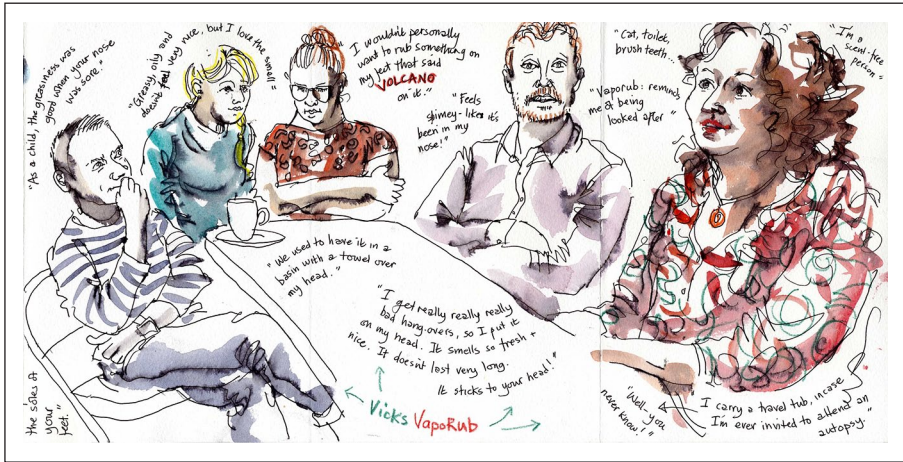 "As a child, the greasiness was
good when your nose
was sore."
"Greasy, oily and
doesn't feel very nice, but I love the
smell"
I wouldn't personally
want to rub something on
my that said
VOLCANO
on it."
"Feels
slimey - like it's
been in my
nose!"
"Cat, toilet,
brush teeth...
"I'm a
scent-free
person"
"Vaporub: reminds
me of being
looked after"
"We used to have it in a
basin with a towel over
my head."
"I get really really really
bad hangovers, so I put it
on my head. It smells so fresh +
nice. It doesn't last very long.
It sticks to your head!"
Vicks VapoRub
"Well, you
never know!"
I carry a travel tub, incase
I'm ever invited to attend an
autopsy."
the soles of
your
feet."